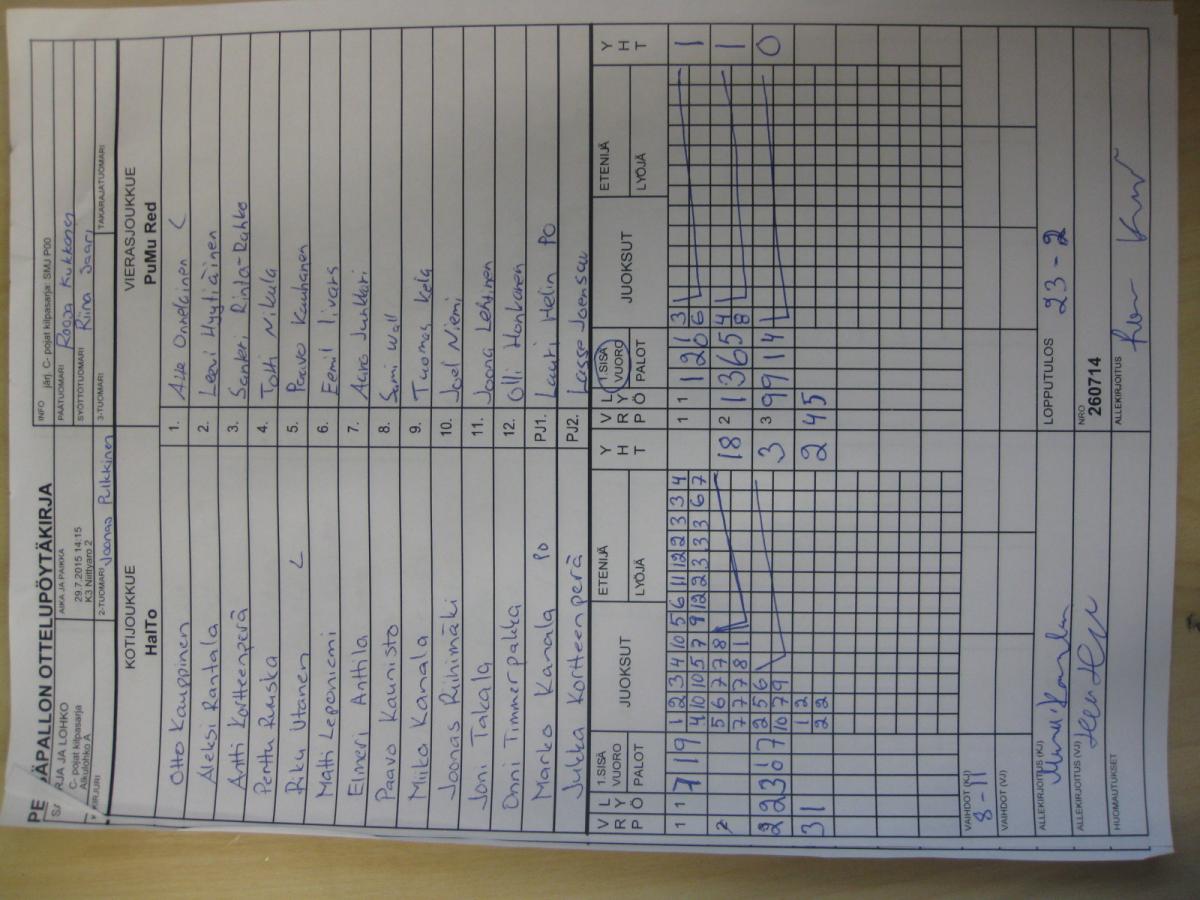 PE SÄPALLON OTTELUPÖYTÄKIRJA
RJA JA LOHKO
C- pojat kilpasarja
Alkulohko A
KIRJURI
AIKA JA PAIKKA
29.7.2015 14:15
K3 Niittyaro 2
2-TUOMARI Joonas Pulkkinen
INFO järj. C- pojat kilpasarja: SMJ P00
PÄÄTUOMARI Roosa Kukkonen
SYÖTTÖTUOMARI Riina Saari
3-TUOMARI
TAKARAJATUOMARI
KOTIJOUKKUE
HalTo
VIERASJOUKKUE
PuMu Red
Otto Kauppinen 1. Atte Onnelainen C
Aleksi Rantala 2. Leevi Hyytiäinen
Antti Kortteenperä 3. Santeri Rinta-Dahko
Perttu Ruuska 4. Totti Nikula
Riku Utanen C 5. Paavo Kauhanen
Matti Leponiemi 6. Eemil Iivars
Elmeri Anttila 7. Aaro Junkkari
Paavo Kaunisto 8. Sami Wall
Miika Kanala 9. Tuomas Kela
Joonas Riihimäki 10. Joel Niemi
Joni Takala 11. Joona Lehtinen
Onni Timmerpakka 12. Olli Honkanen
Marko Kanala PO PJ1. Lauri Helin PO
Jukka Kortteenperä PJ2. Lasse Joensuu
V R P L Y Ö 1.SISÄ VUORO PALOT JUOKSUT ETENIJÄ LYÖJÄ Y H T
V R P L Y Ö 1.SISÄ VUORO PALOT JUOKSUT ETENIJÄ LYÖJÄ Y H T
1 1 7 1 9 1 2 3 4 10 5 6 11 12 2 3 3 4
4 10 10 5 7 9 12 2 3 3 3 6 7
1 1 1 2 6 3 6 1
2 5 6 7 7 8 18
7 7 7 8 1
2 1 3 6 5 4 8 1
2 2 3 6 7 2 5 6 3
10 7 9
3 9 9 1 4 0
3 1 1 2 2
2 2
4 5
VAIHDOT (KJ)
8-11
VAIHDOT (VJ)
ALLEKIRJOITUS (KJ)
LOPPUTULOS 23 - 2
ALLEKIRJOITUS (VJ)
NRO
260714
HUOMAUTUKSET
ALLEKIRJOITUS